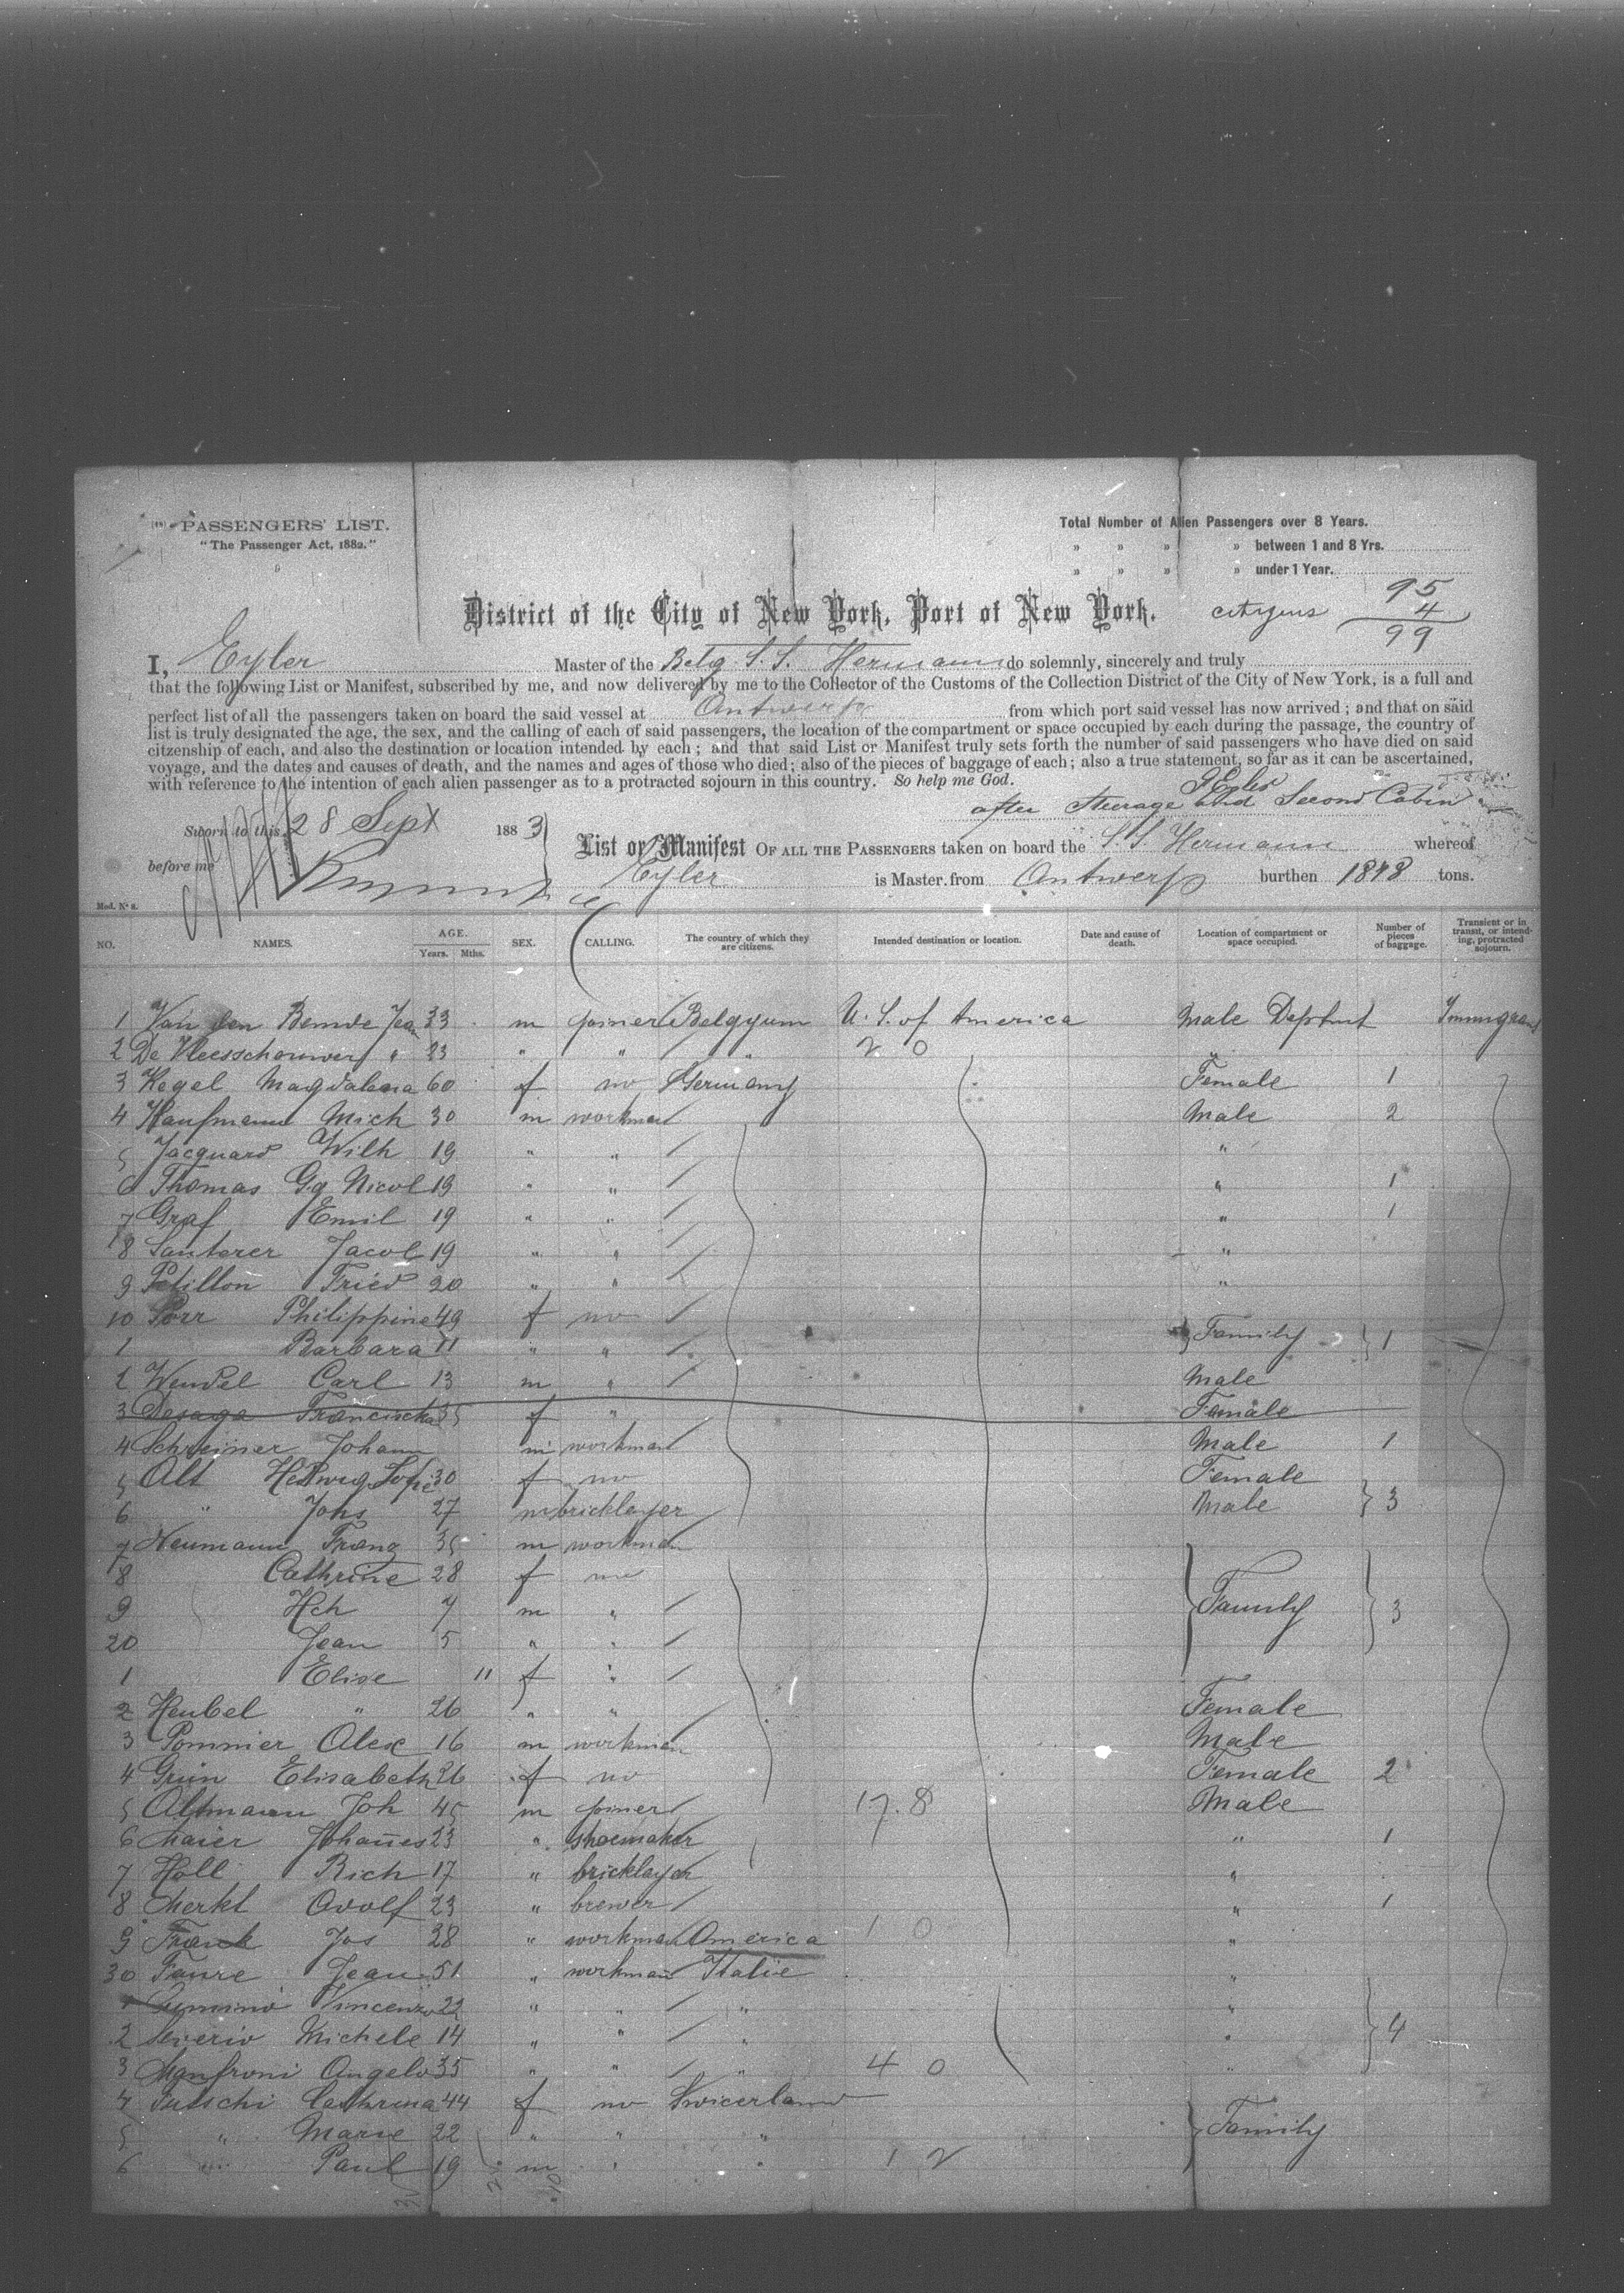 PASSENGERS' LIST.
"The Passenger Act, 1882."
Total Number of Alien Passengers over 8 Years.
" " " " between 1 and 8 Yrs.
" " " " under 1 Year.
95
District of the City of New York, Port of New York. citizens 4
99
I, Eyler Master of the Belg. S. S. Hermann do solemnly, sincerely and truly
that the following List or Manifest, subscribed by me, and now delivered by me to the Collector of the Customs of the Collection District of the City of New York, is a full and
perfect list of all the passengers taken on board the said vessel at Antwerp from which port said vessel has now arrived; and that on said
list is truly designated the age, the sex, and the calling of each of said passengers, the location of the compartment or space occupied by each during the passage, the country of
citzenship of each, and also the destination or location intended by each; and that said List or Manifest truly sets forth the number of said passengers who have died on said
voyage, and the dates and causes of death, and the names and ages of those who died; also of the pieces of baggage of each; also a true statement, so far as it can be ascertained,
with reference to the intention of each alien passenger as to a protracted sojourn in this country. So help me God.
after Steerage and Second Cabin
Sworn to this 28 Sept 1883
before me
List or Manifest OF ALL THE PASSENGERS taken on board the S. S. Hermann whereof
Eyler is Master from Antwerp burthen 1848 tons.
Mod. No 8.
NO. NAMES. AGE. Years. Mths. SEX. CALLING. The country of which they are citizens. Intended destination or location. Date and cause of death. Location of compartment or space occupied. Number of pieces of baggage. Transient or in transit, or intending, protracted sojourn.
1 Van den Jean 33 m joiner Belgyum U. S. of America Male Deptmt Immigrant
2 De Vleesschouwer " 23 " " " 2 0 "
3 Kegel Magdalena 60 f no Germany Female 1
4 Kaufmann Mich 30 m workman Male 2
5 Jacquard Wilh 19 " " "
6 Thomas Gg Nicol 19 " " " 1
7 Graf Emil 19 " " " 1
8 Santerer Jacob 19 " " "
9 Petillon Fried 20 " " "
10 Porr Philippine 49 f no Family 1
1 Barbara 11 " "
2 Wendel Carl 13 m " Male
3 Desaga Francisска 35 f " Female
4 Schreiner Johann m workman Male 1
5 Alt Hedwig Sofie 30 f no Female
6 " Johs 27 m bricklayer Male 3
7 Neumann Franz 35 m workman
8 Cathrine 28 f no
9 Hch 7 m " Family 3
20 Jean 5 " "
1 Elise 11 f "
2 Heubel " 26 " " Female
3 Pommier Alex 16 m workman Male
4 Grün Elisabeth 26 f no Female 2
5 Altmann Joh 45 m joiner 17. 8 Male
6 Maier Johannes 23 " shoemaker " 1
7 Holl Rich 17 " bricklayer "
8 Merkl Adolf 23 " brewer " 1
9 Franck Jos 28 " workman America 1 0 "
30 Faure Jean 51 " workman Italie "
1 Vincenzo 22 " " " "
2 Severio Michele 14 " " " " 4
3 Manfroni Angelo 35 " " " 4 0 "
4 Cathrina 44 f no Swicerland
5 " Marie 22 " " " Family
6 " Paul 19 m " " 1 2